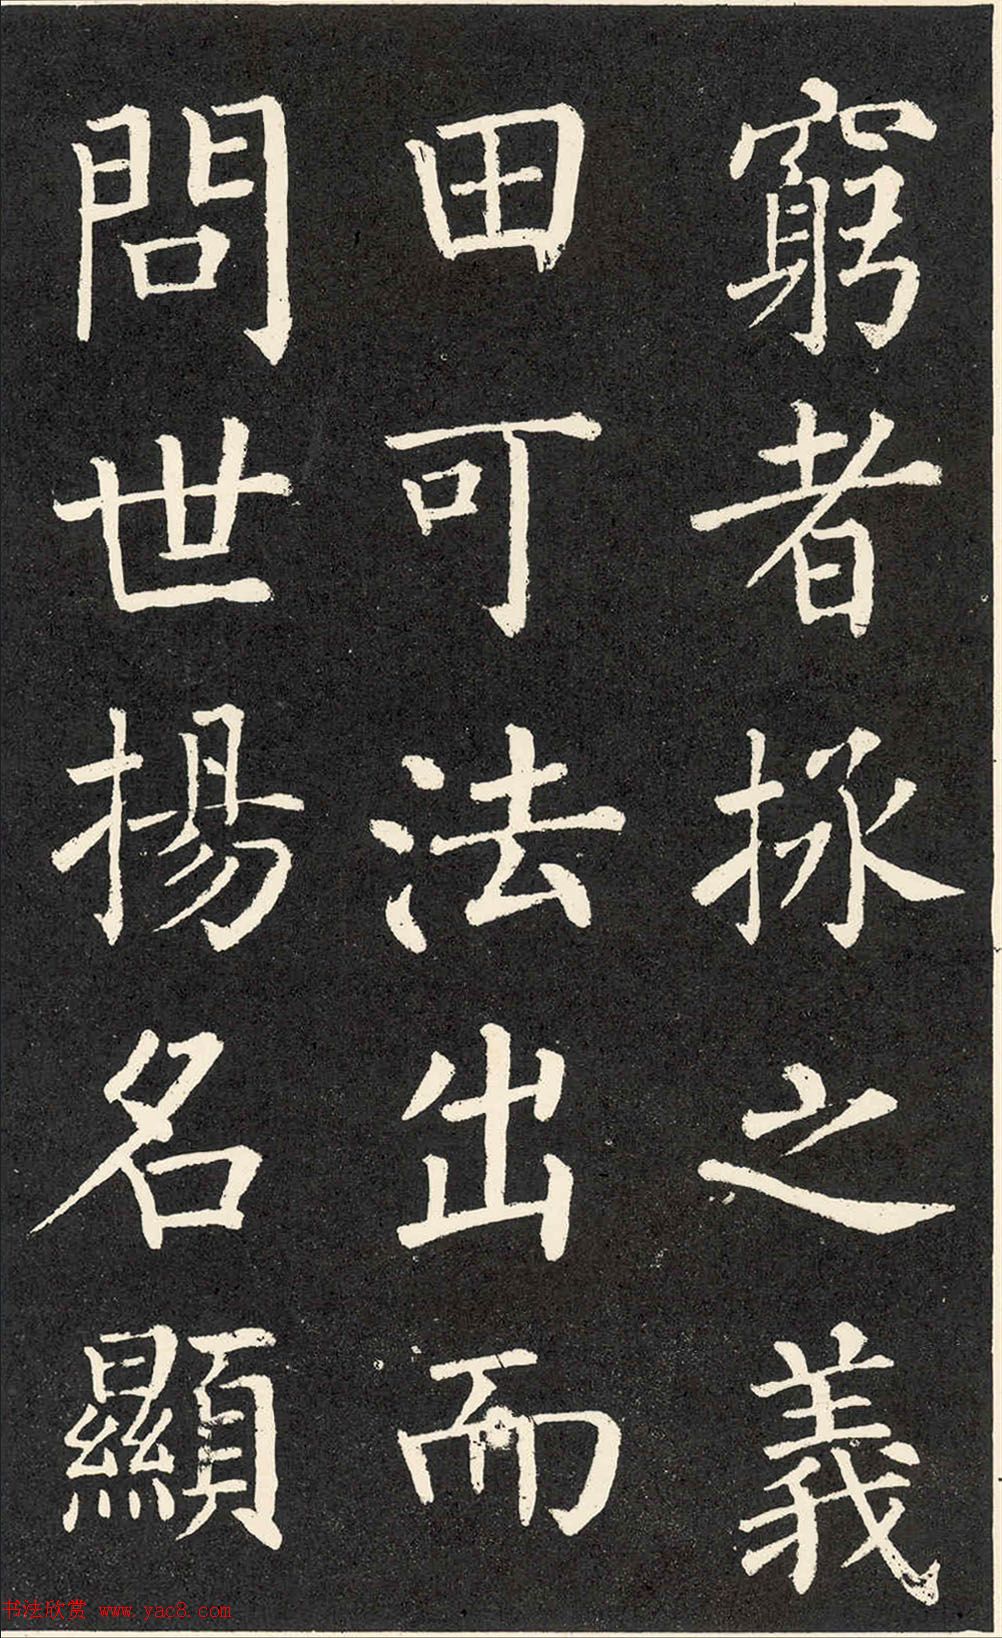 窮者拯之義
田可法出而
問世揚名顯
书法欣赏 www.yac8.com